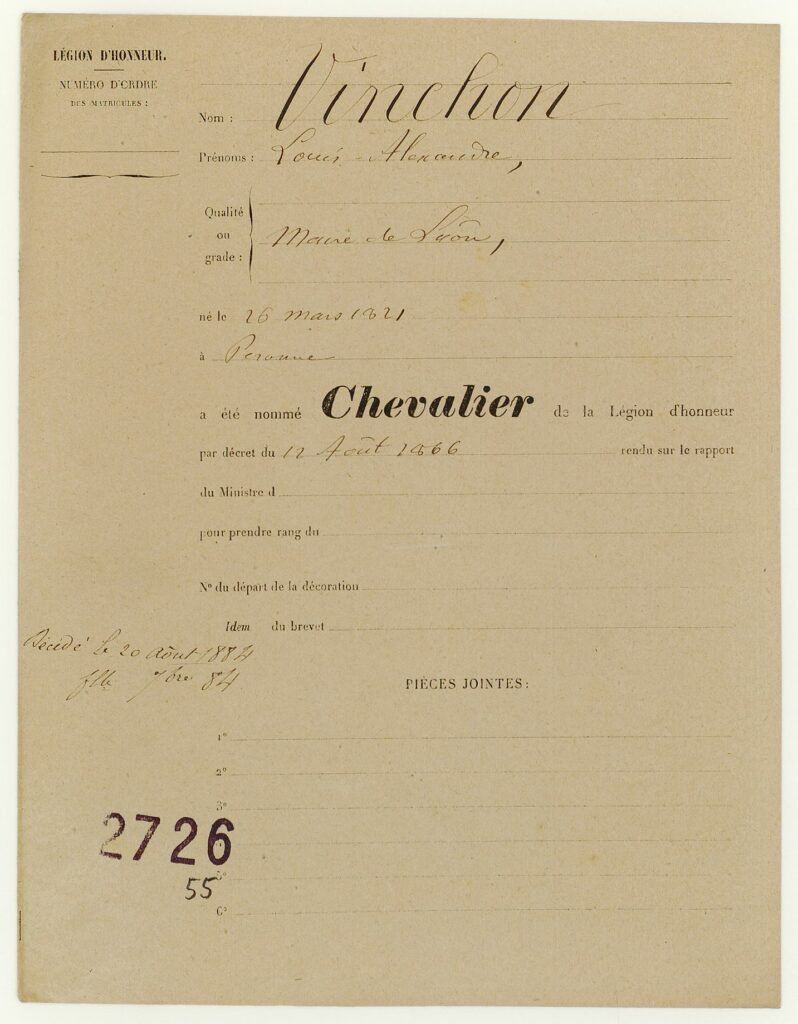 LÉGION D'HONNEUR.
NUMÉRO D'ORDRE
DES MATRICULES :
Nom : Vinchon
Prénoms : Louis-Alexandre,
Qualité
ou
grade :
Maire de Laon,
né le 26 mars 1821
à Peronne
a été nommé Chevalier de la Légion d'honneur
par décret du 12 Août 1866 rendu sur le rapport
du Ministre d
pour prendre rang du
No du départ de la décoration
Idem du brevet
Décédé le 20 Août 1884
7bre 84
PIÈCES JOINTES :
1o
2o
3o
2726
5o
55
6o